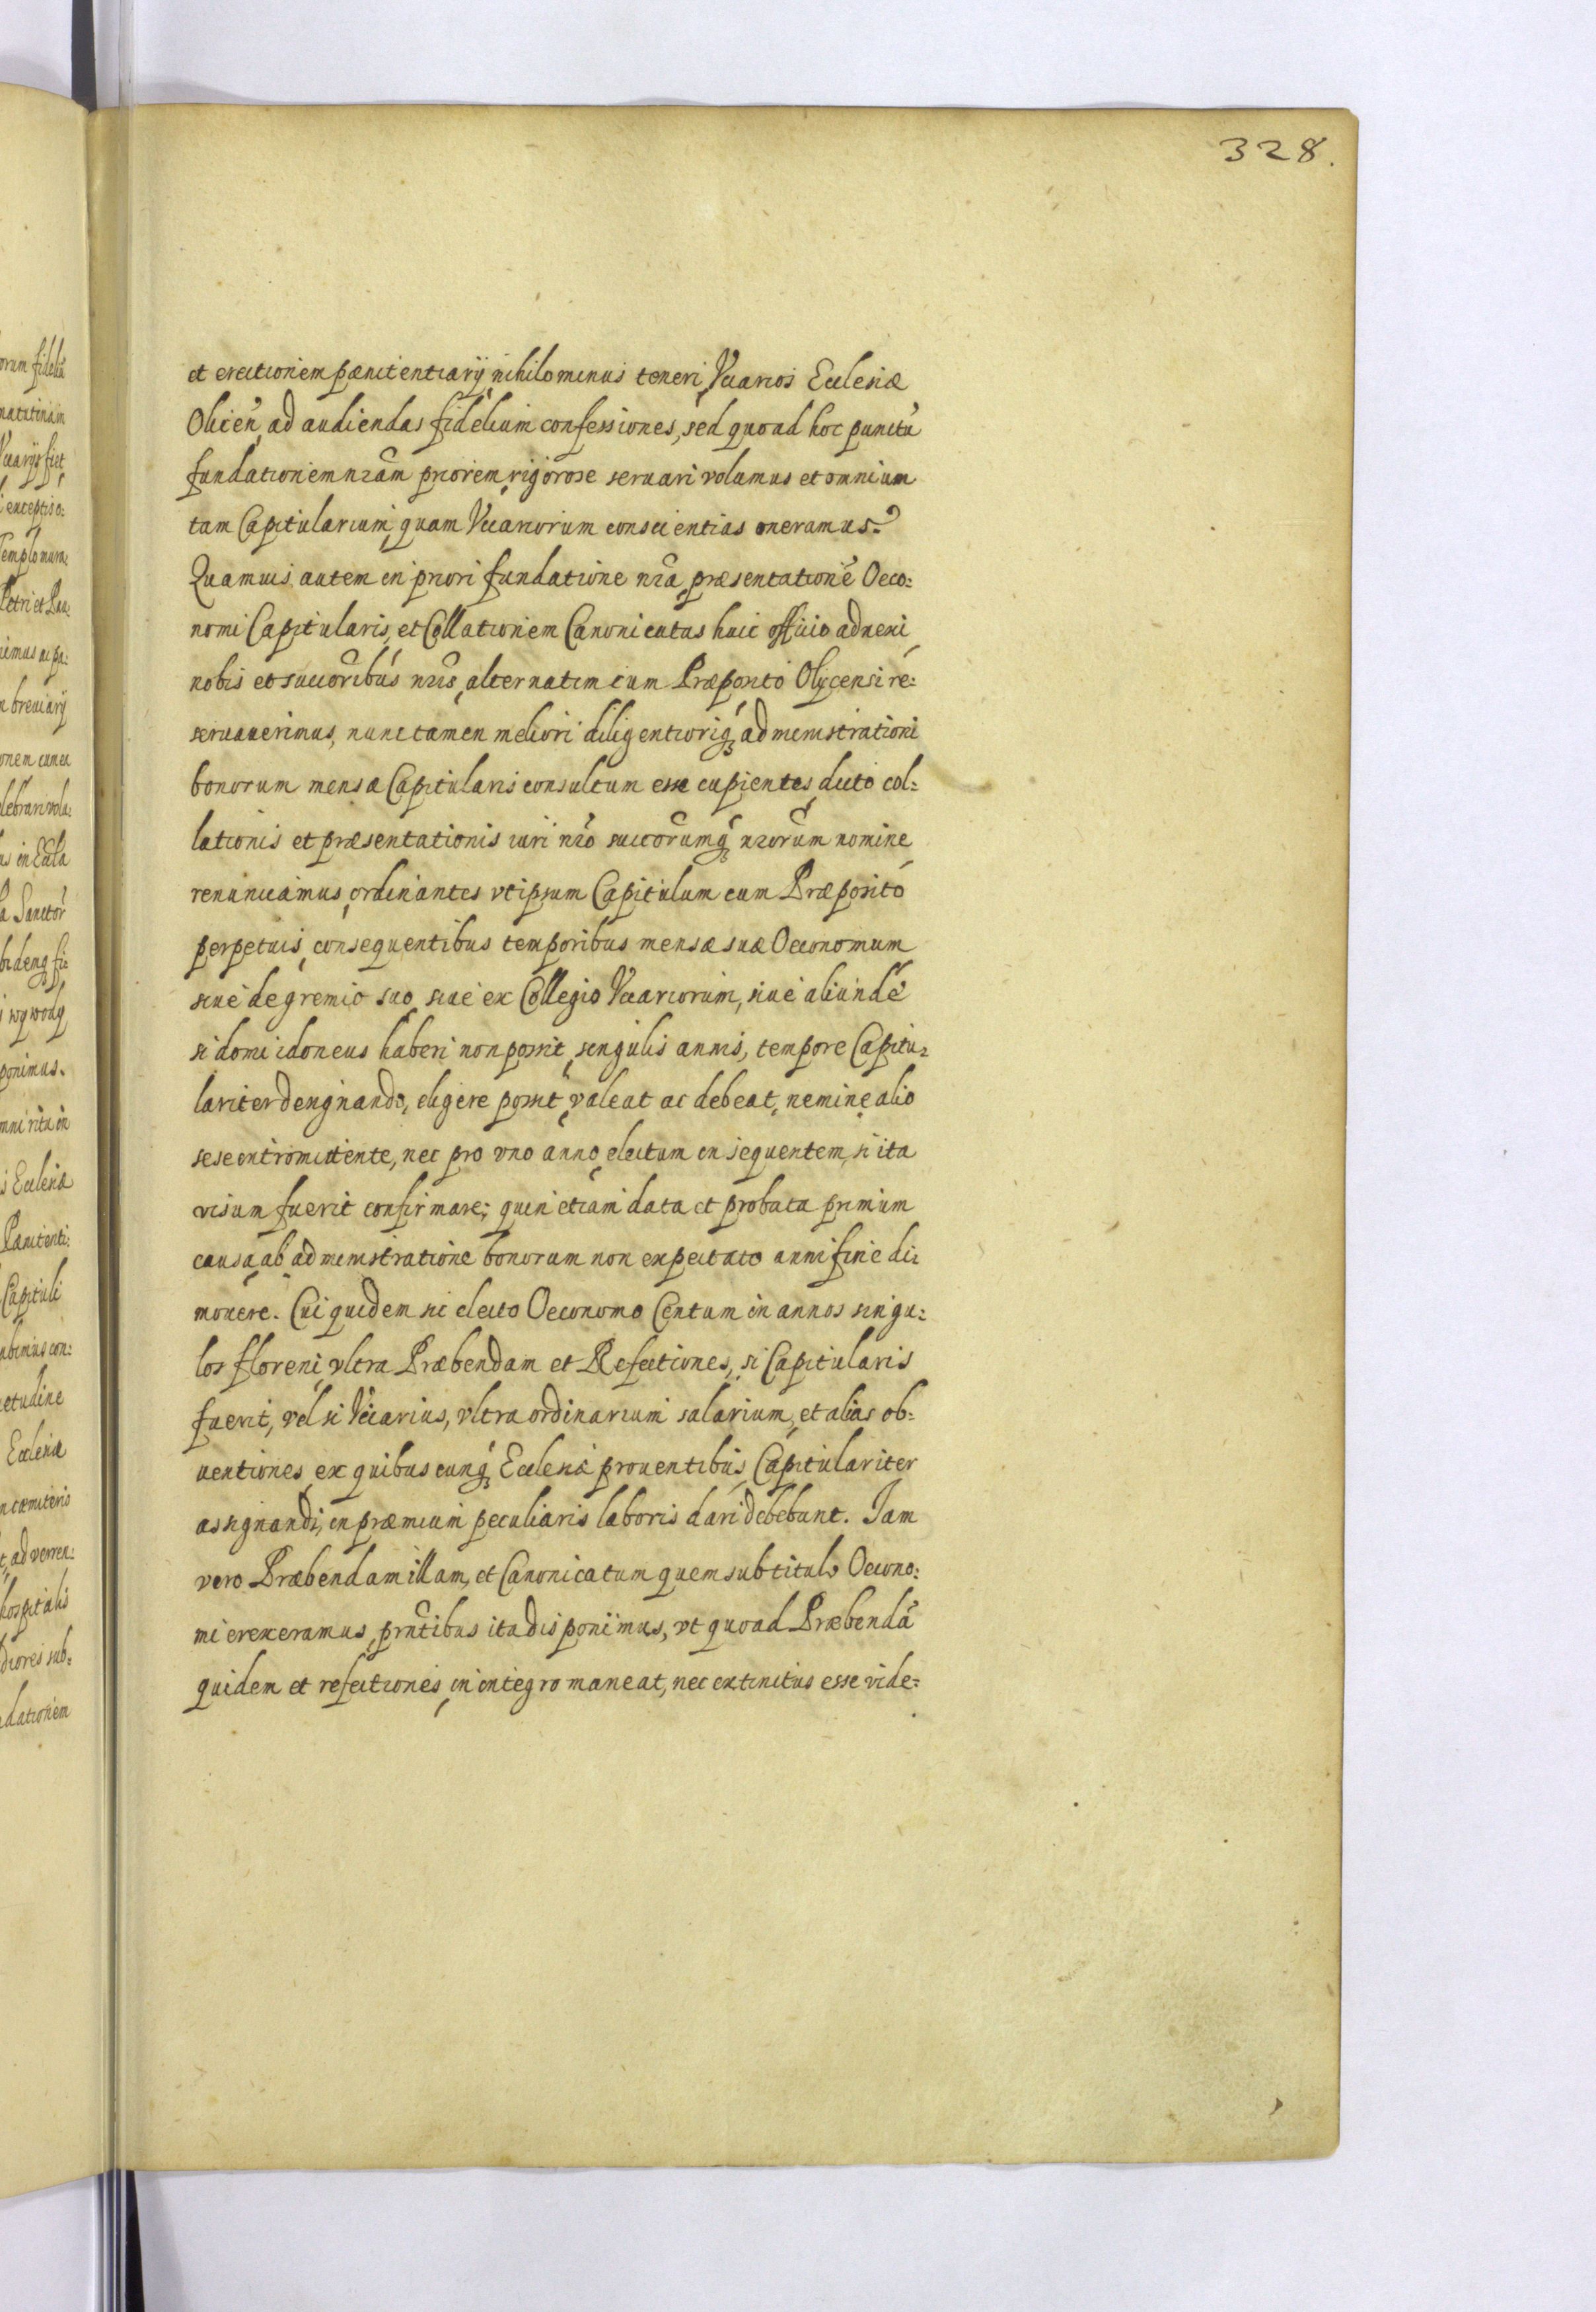 328.
et erectionem pænitentiarij nihilominus teneri Vicarios Ecclesiæ
Olicen̄ ad audiendas fidelium confessiones, sed quoad hoc punctū
fundationem nr̃am priorem rigorose seruari volumus et omnium
tam Capitularium quam Vicariorum conscientias oneramus.
Quamuis autem in priori fundatione nr̃a præsentationē Oeco:
nomi Capitularis, et Collationem Canonicatus huic officio adnexi
nobis et succor̃ibus nr̃is alternatim cum Præposito Olycensi re:
seruauerimus, nunc tamen meliori diligentioriq́ꝫ administrationi
bonorum mensæ Capitularis consultum esse cupientes, dicto col:
lationis et præsentationis iuri nr̃o succor̃umq́ꝫ nr̃orum nomine
renunciamus, ordinantes vt ipsum Capitulum cum Præposito
perpetuis consequentibus temporibus mensæ suæ Oeconomum
siue de gremio suo, siue ex Collegio Vicariorum, siue aliunde
si domi idoneus haberi non possit, singulis annis, tempore Capitu:
lariter designando, eligere possit, valeat ac debeat, nemine alio
sese intromittente, nec pro vno anno electum in sequentem, si ita
visum fuerit confirmare; quin etiam data et probata primum
causa, ab administratione bonorum non expectato anni fine di:
mouere. Cui quidem sic electo Oeconomo Centum in annos singu:
los floreni, vltra Præbendam et Refectiones, si Capitularis
fuerit, vel si Vicarius, vltra ordinarium salarium, et alias ob:
uentiones, ex quibuscunq́ꝫ Ecclesiæ prouentibus, Capitulariter
assignandi, in præmium peculiaris laboris dari debebunt. Iam
vero Præbendam illam, et Canonicatum quem sub titulo Oecono:
mi erexeramus, prn̄tibus ita disponimus, vt quoad Præbendā
quidem et refectiones in integro maneat, nec extinctus esse vide: